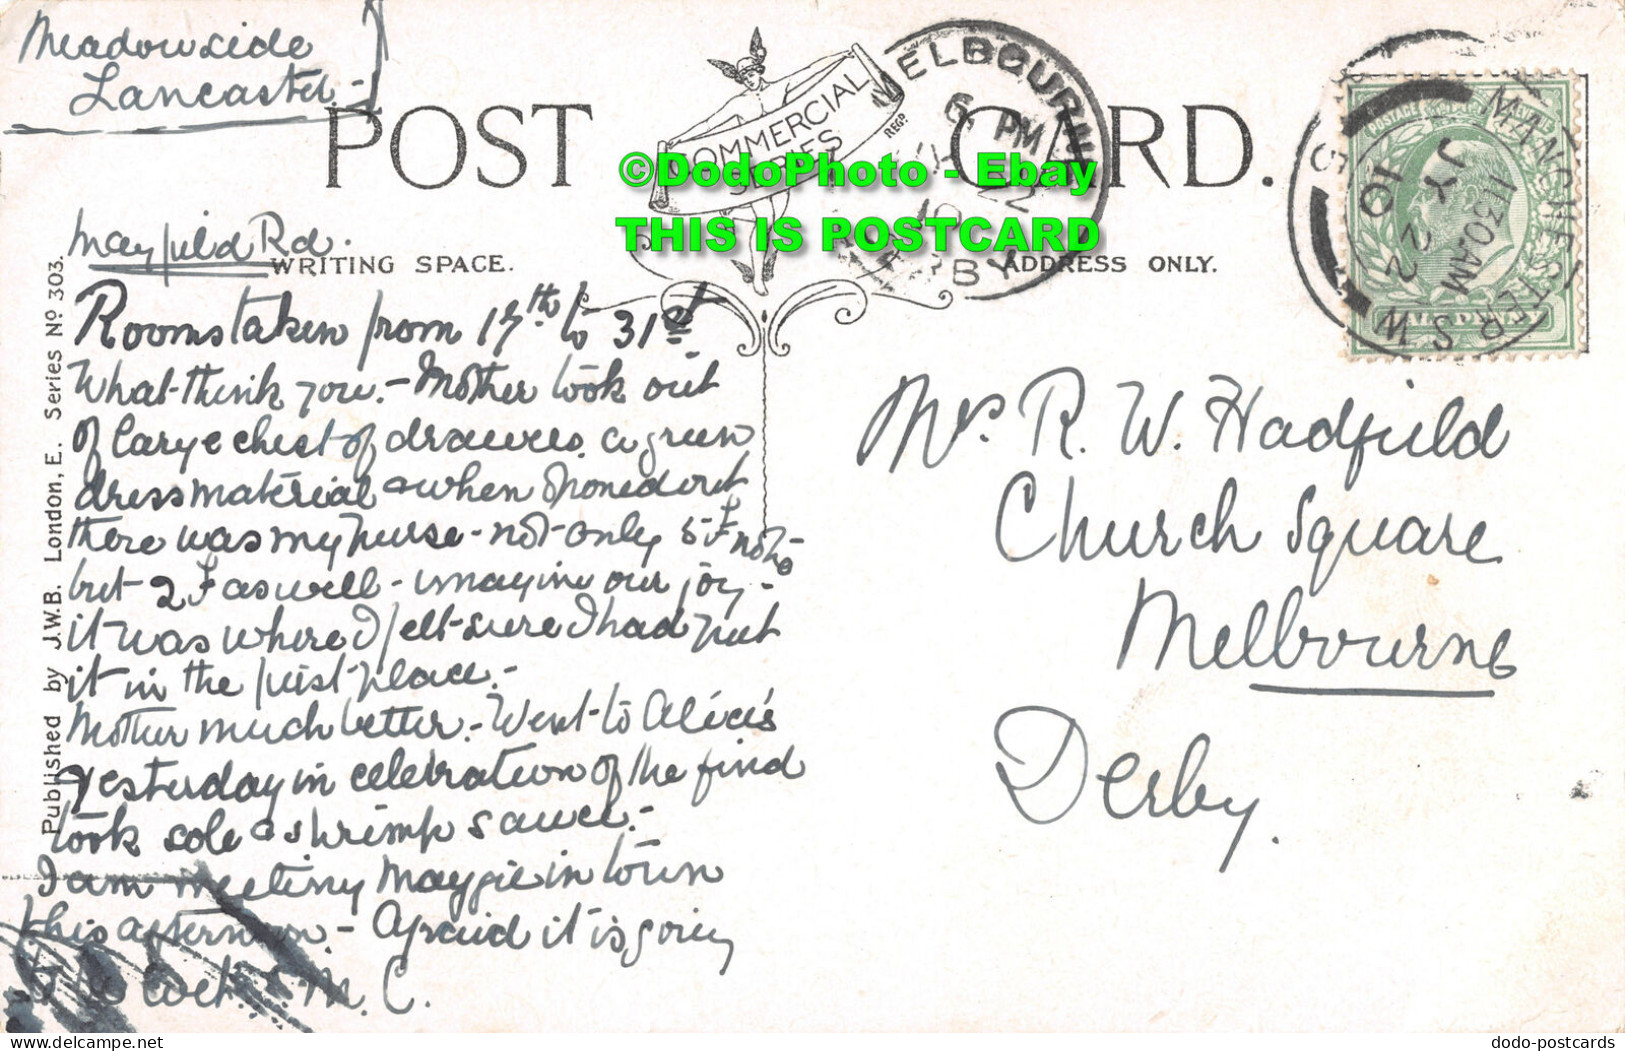 Meadowside
Lancaster
POST CARD.
COMMERCIAL
SERIES
REGD.
MELBOURNE
6 PM
22
10
DERBY
MANCHESTER S.W
11 30 AM
JY 22
10
POSTAGE & REVENUE
HALFPENNY
©DodoPhoto - Ebay
THIS IS POSTCARD
Mayfield Rd.
WRITING SPACE.
ADDRESS ONLY.
Rooms taken from 17th to 31st
What think you. - Mother took out
of large chest of drawers. a green
dress material & when I rolled out
there was my purse - not only 5£ note
but 2£ as well - imagine our joy -
it was where I felt sure I had put
it in the first place. -
Mother much better. - Went to Alice's
yesterday in celebration of the find
took sole & shrimp sauce. -
I am meeting Maggie in town
this afternoon. - Afraid it is going
to be wet. M. C.
Mrs R. W. Hadfield
Church Square
Melbourne
Derby.
Published by J.W.B. London, E. Series No 303.
dodo-postcards